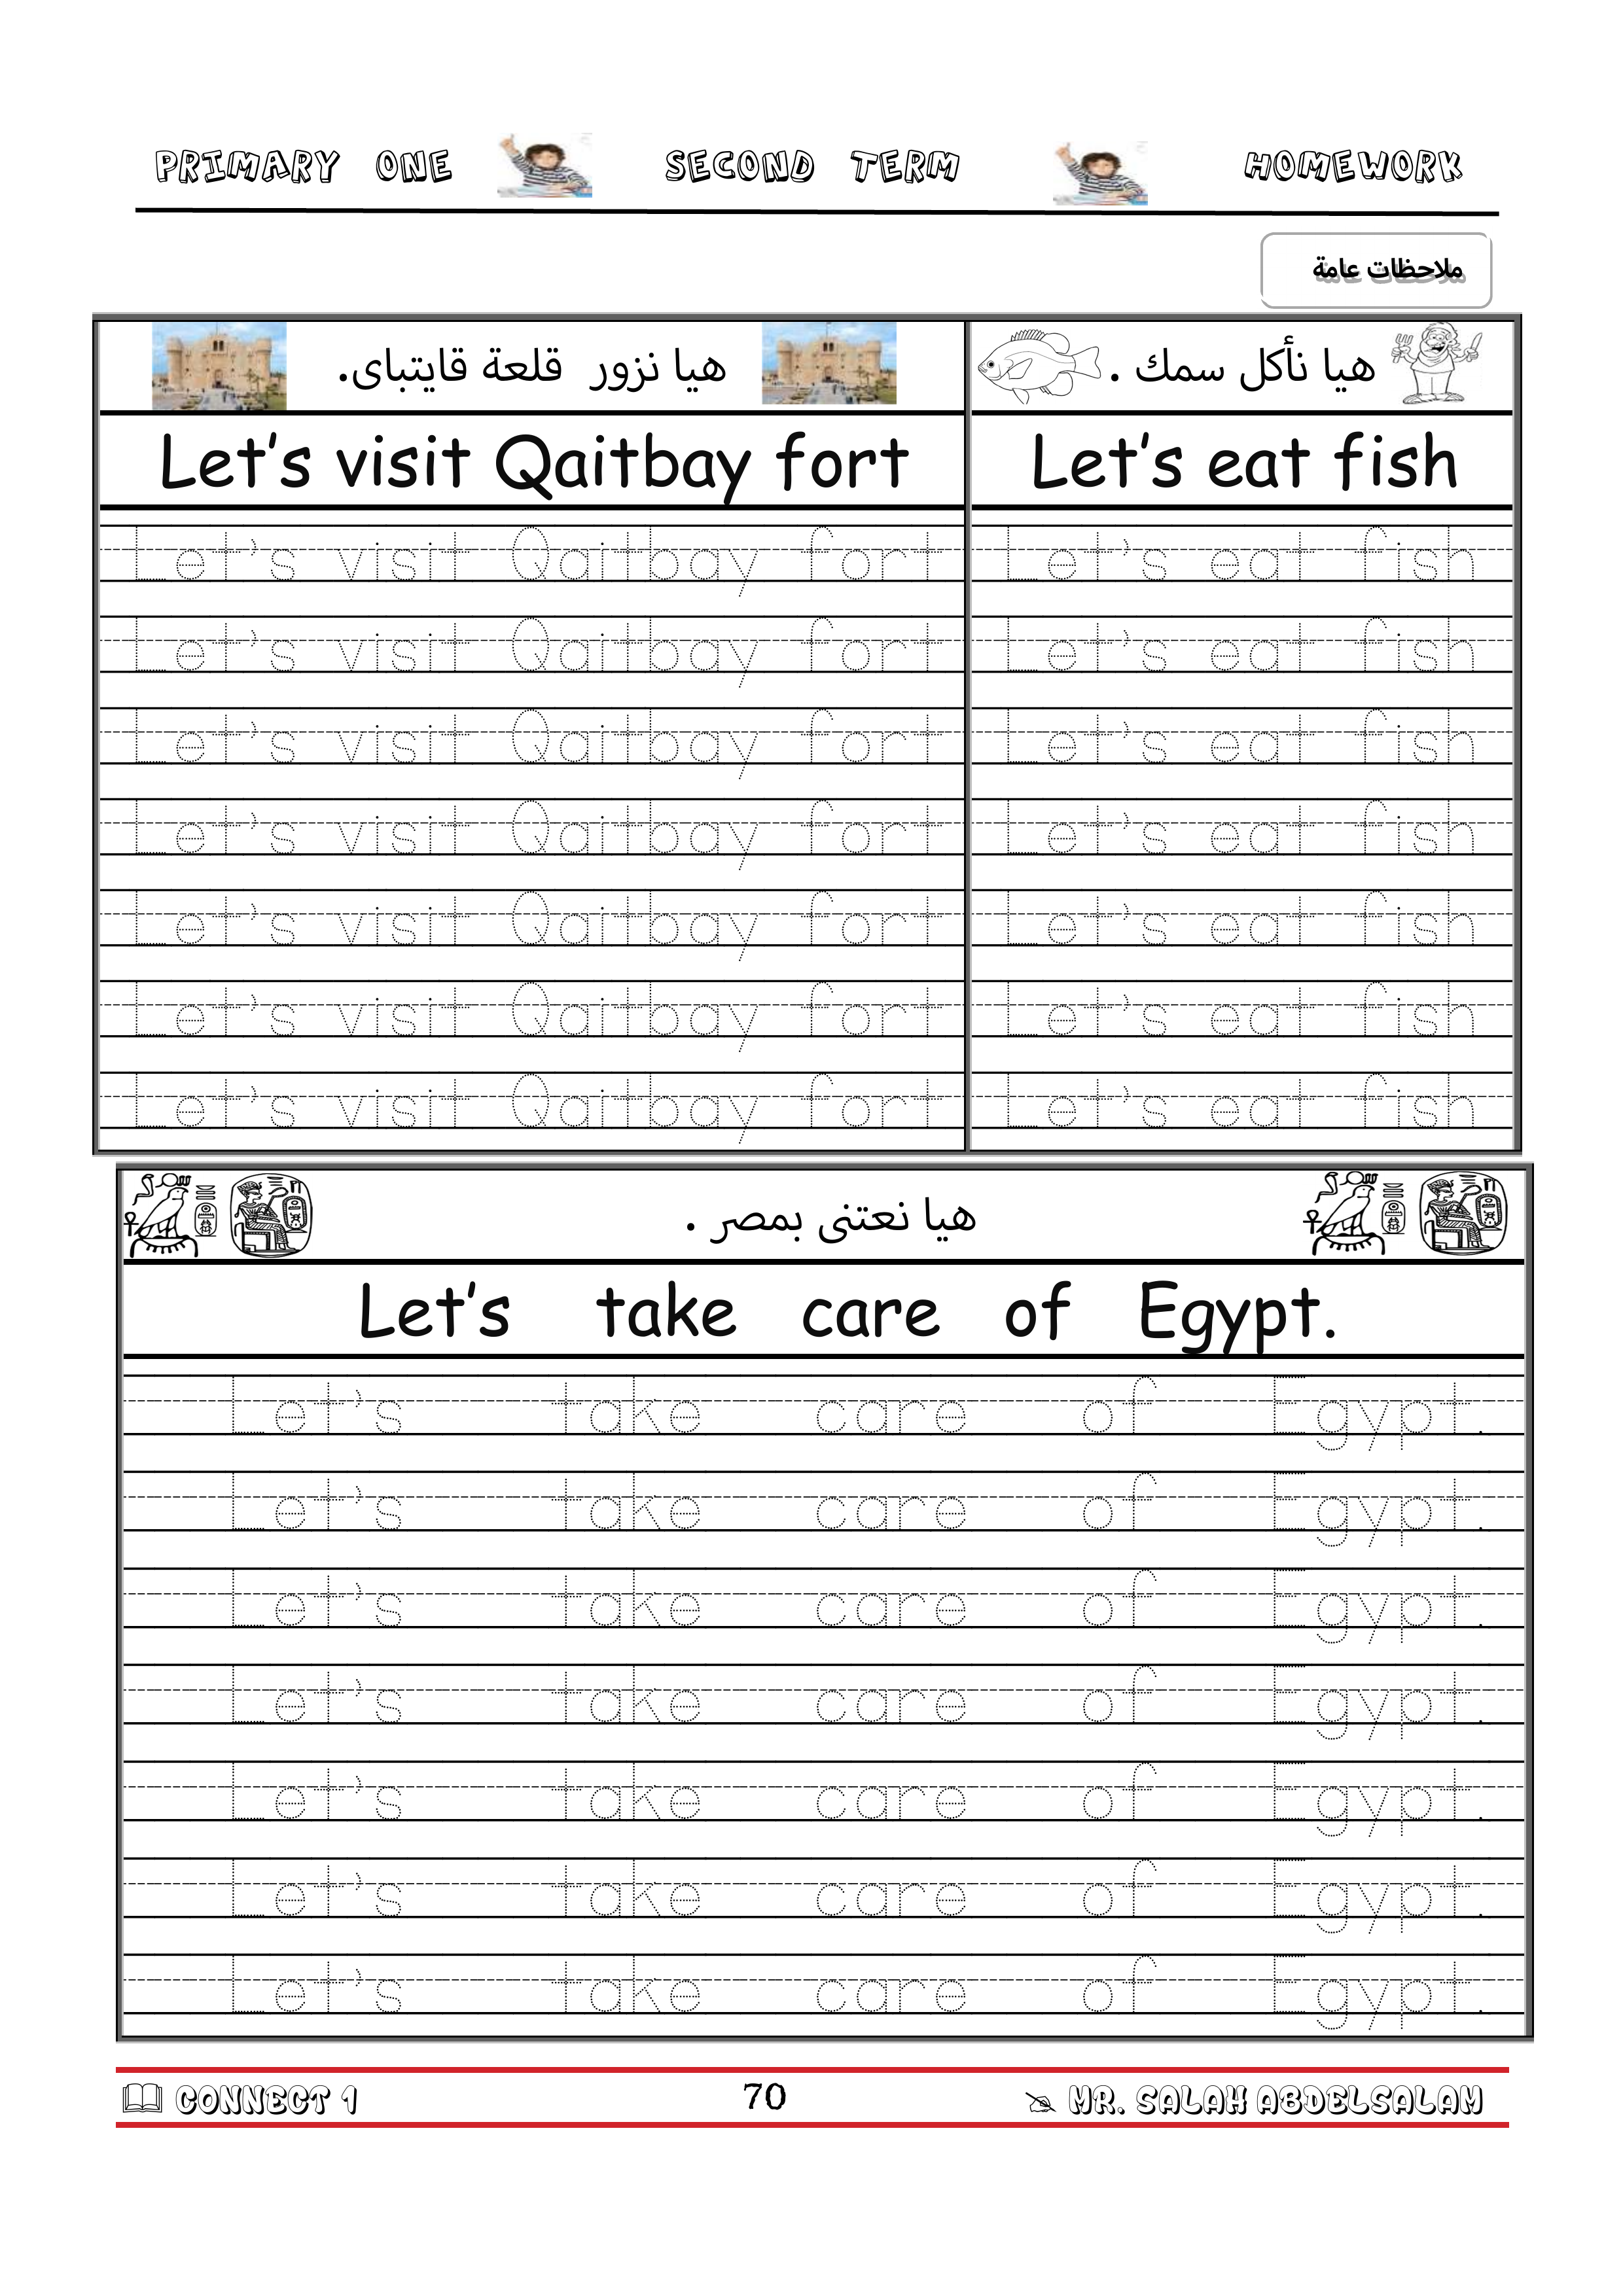 PRIMARY ONE SECOND TERM HOMEWORK
ملاحظات عامة
هيا نزور قلعة قايتباى.
Let's visit Qaitbay fort
Let's visit Qaitbay fort
Let's visit Qaitbay fort
Let's visit Qaitbay fort
Let's visit Qaitbay fort
Let's visit Qaitbay fort
Let's visit Qaitbay fort
Let's visit Qaitbay fort
هيا نأكل سمك .
Let's eat fish
Let's eat fish
Let's eat fish
Let's eat fish
Let's eat fish
Let's eat fish
Let's eat fish
Let's eat fish
هيا نعتنى بمصر .
Let's take care of Egypt.
Let's take care of Egypt.
Let's take care of Egypt.
Let's take care of Egypt.
Let's take care of Egypt.
Let's take care of Egypt.
Let's take care of Egypt.
Let's take care of Egypt.
CONNECT 1 70 MR. SALAH ABDELSALAM